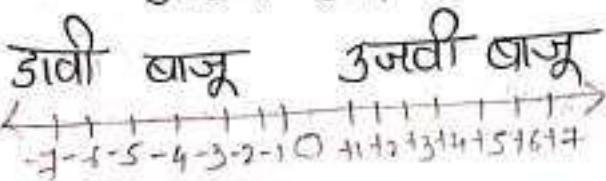 डावी बाजू उजवी बाजू
-7 -6 -5 -4 -3 -2 -1 0 +1 +2 +3 +4 +5 +6 +7